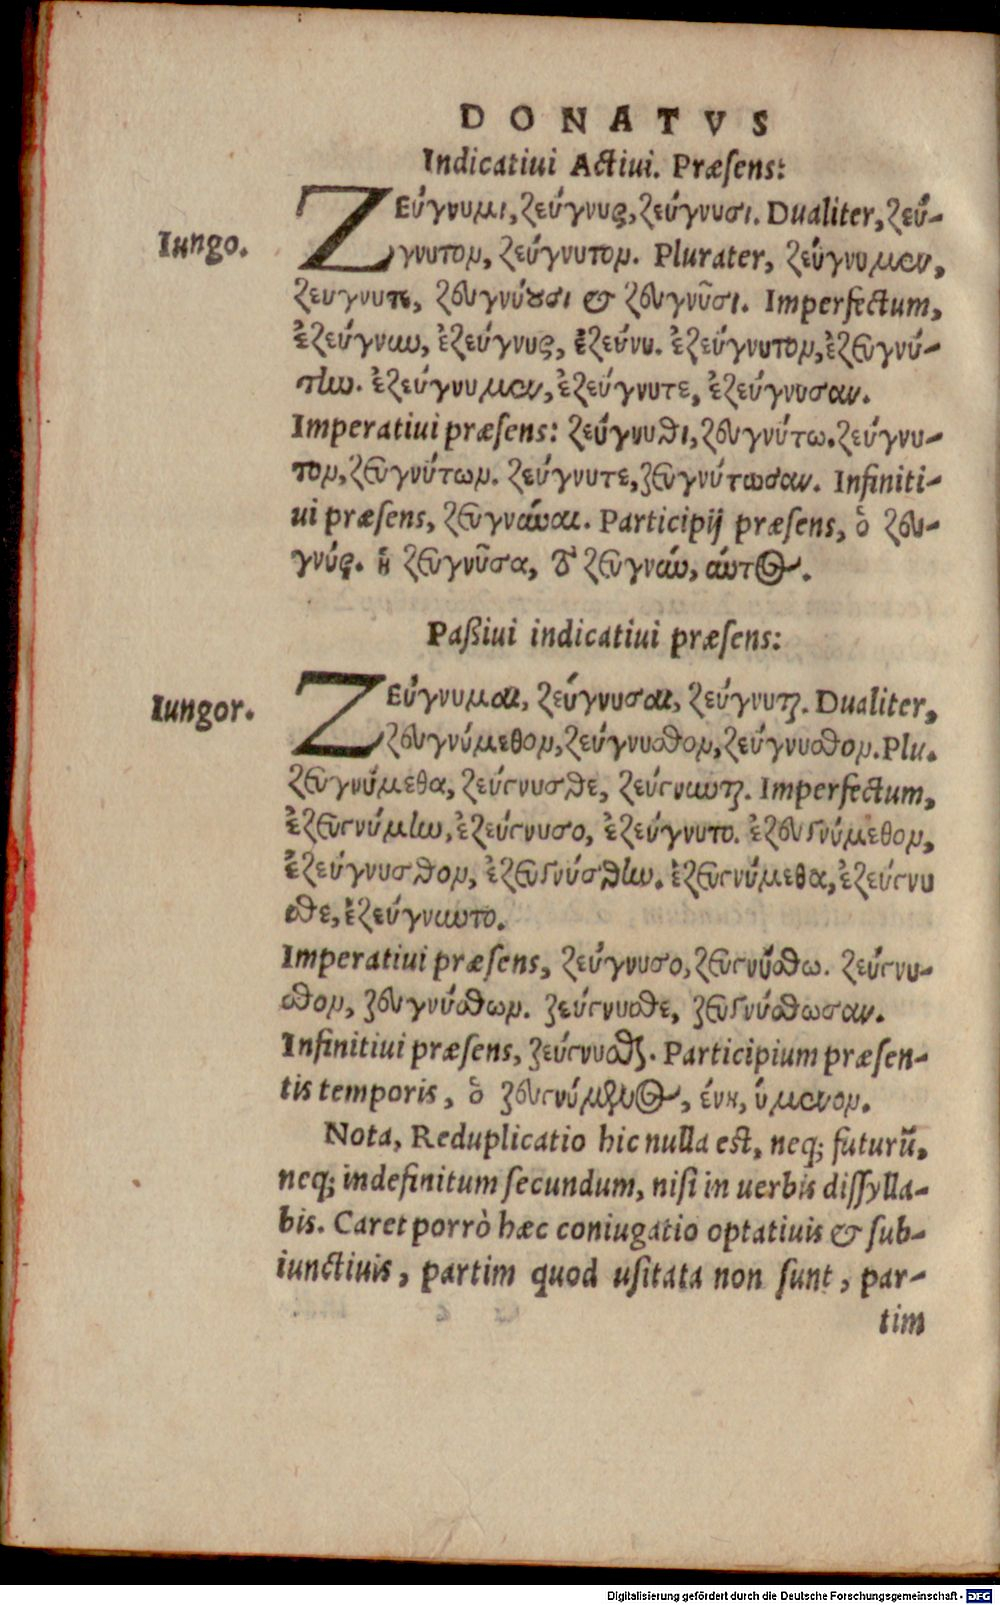 DONATVS
Indicatiui Actiui. Præsens:
Iungo.
ΖΕύγνυμι, ζεύγνυς, ζεύγνυσι. Dualiter, ζεύ-
γνυτον, ζεύγνυτον. Plurater, ζεύγνυμεν,
ζευγνυτε, ζευγνύουσι & ζευγνῦσι. Imperfectum,
ἐζεύγνυν, ἐζεύγνυς, ἐζεύνυ. ἐζεύγνυτον, ἐζευγνύ-
την. ἐζεύγνυμεν, ἐζεύγνυτε, ἐζεύγνυσαν.
Imperatiui præsens: ζεύγνυθι, ζευγνύτω. ζεύγνυ-
τον, ζευγνύτων. ζεύγνυτε, ζευγνύτωσαν. Infiniti-
ui præsens, ζευγνύναι. Participij præsens, ὁ ζευ-
γνύς. ἡ ζευγνῦσα, τὸ ζευγνύν, ύντος.
Paßiui indicatiui præsens:
Iungor.
ΖΕύγνυμαι, ζεύγνυσαι, ζεύγνυται. Dualiter,
ζευγνύμεθον, ζεύγνυσθον, ζεύγνυσθον. Plu.
ζευγνύμεθα, ζεύγνυσθε, ζεύγνυνται. Imperfectum,
ἐζευγνύμην, ἐζεύγνυσο, ἐζεύγνυτο. ἐζευγνύμεθον,
ἐζεύγνυσθον, ἐζευγνύσθην. ἐζευγνύμεθα, ἐζεύγνυ
σθε, ἐζεύγνυντο.
Imperatiui præsens, ζεύγνυσο, ζευγνύσθω. ζεύγνυ-
σθον, ζευγνύσθων. ζεύγνυσθε, ζευγνύσθωσαν.
Infinitiui præsens, ζεύγνυσθαι. Participium præsen-
tis temporis, ὁ ζευγνύμενος, ένη, ύμενον.
Nota, Reduplicatio hic nulla est, neq; futurũ,
neq; indefinitum secundum, nisi in uerbis dissylla-
bis. Caret porrò hæc coniugatio optatiuis & sub-
iunctiuis, partim quod usitata non sunt, par-
tim
Digitalisierung gefördert durch die Deutsche Forschungsgemeinschaft - DFG